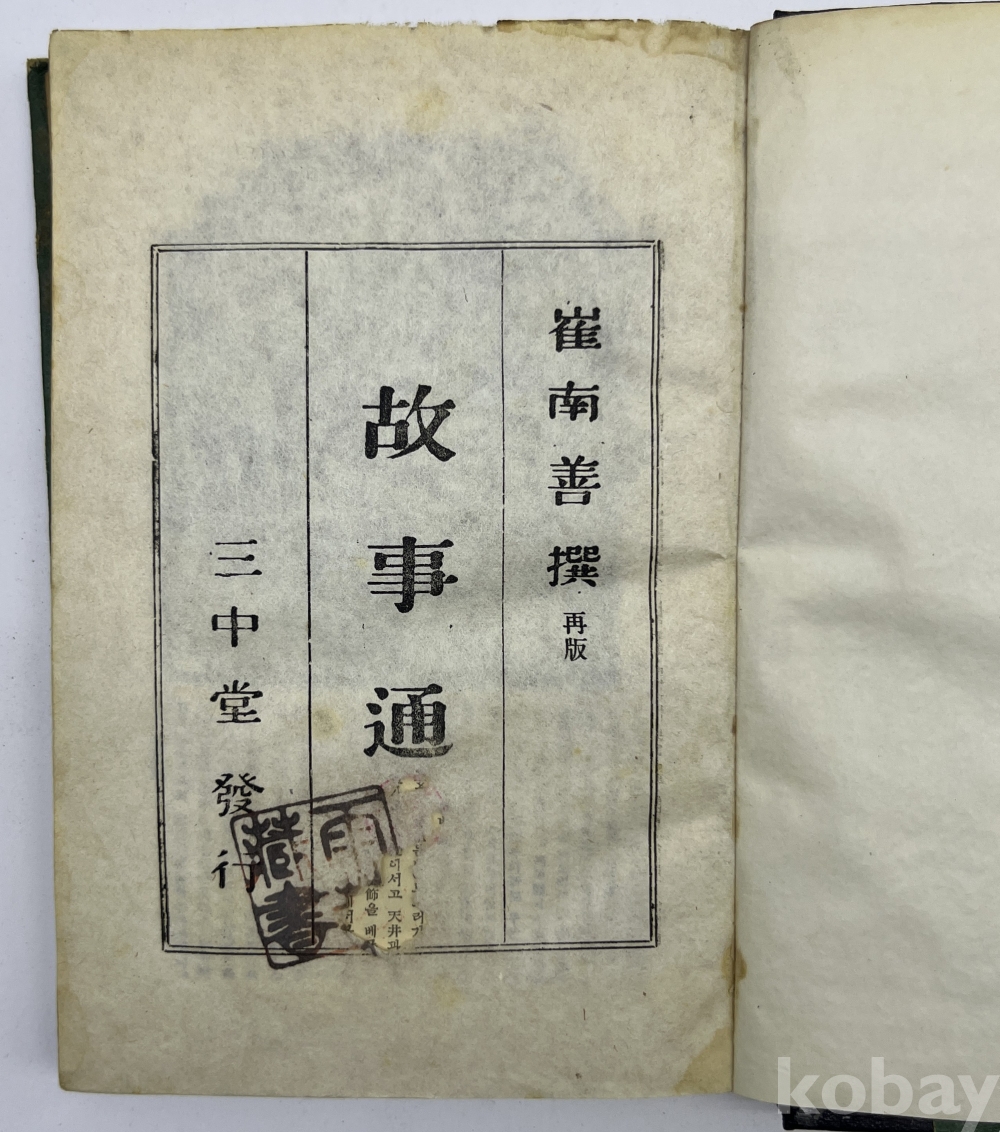 崔南善撰 再版
故事通
三中堂發行
藏書
이서고 天井과
師을 베
kobay